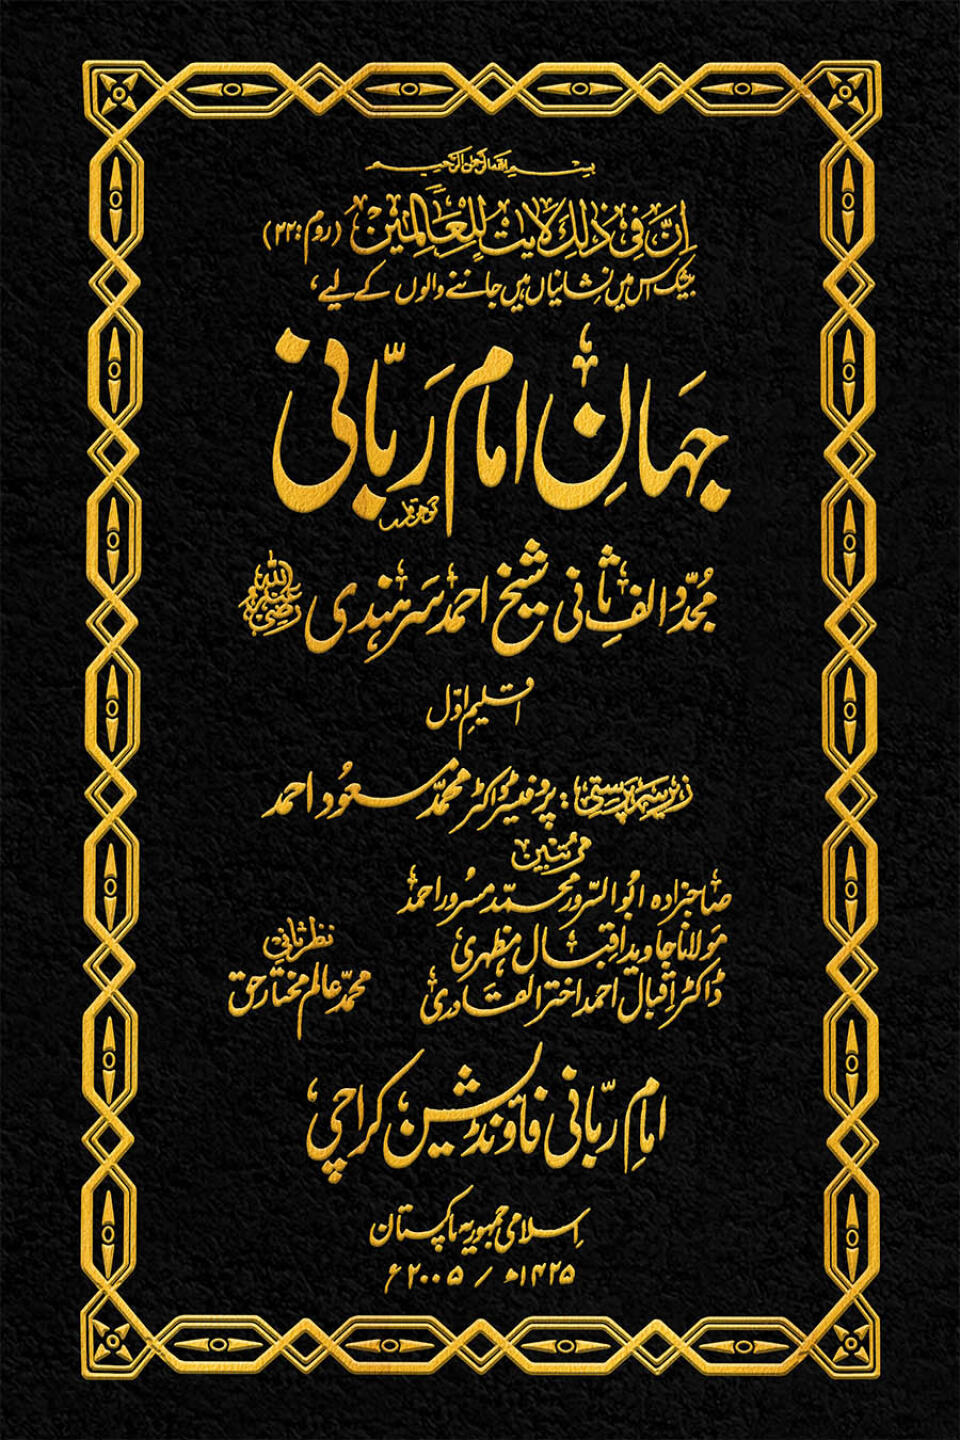 بسم اللہ الرحمن الرحیم
اِنَّ فِیْ ذٰلِکَ لَاٰیٰتٍ لِّلْعَالِمِیْنَ (روم:۲۲)
بیشک اس میں نشانیاں ہیں جاننے والوں کے لیے،
جہانِ امام رَبّانی
گوہر قلم
مُجدّدِ الفِ ثانی شیخ احمد سَرہندی رضی اللہ عنہ
اقلیمِ اوّل
زیرِ سرپرستی: پروفیسر ڈاکٹر محمّد مسعُود احمد
مرتبین
صاحبزادہ ابُو السّرور محمّد مسرُور احمد
مَولانا جاوید اقبال مظہری
نظرِ ثانی
ڈاکٹر اقبال احمد اختر القادری
محمّد عالم مختارِ حق
امامِ ربّانی فاونڈیشن کراچی
اِسلامی جمہوریہ پاکستان
۱۴۲۵ھ / ۲۰۰۵ء